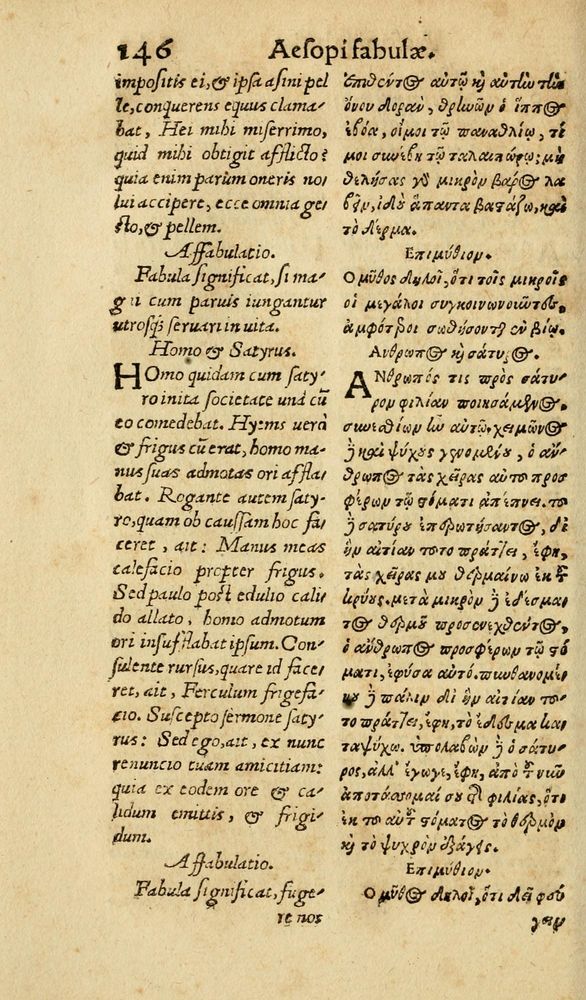 146 Aesopi fabulæ.
impositis ei, & ipsa asini pel
le, conquerens equus clama-
bat, Hei mihi miserrimo,
quid mihi obtigit afflicto?
quia enim parùm oneris no
lui accipere, ecce omnia ge-
sto, & pellem.
Affabulatio.
Fabula significat, si ma-
gni cum paruis iungantur
utrosq; seruari in uita.
Homo & Satyrus.
HOmo quidam cum saty-
ro inita societate unà cū
eo comedebat. Hyems uerò
& frigus cū erat, homo ma-
nus suas admotas ori affla-
bat. Rogante autem saty-
ro, quam ob caussam hoc fa-
ceret, ait: Manus meas
calefacio propter frigus.
Sed paulo post edulio cali-
do allato, homo admotum
ori insufflabat ipsum. Con-
sulente rursus, quare id face-
ret, ait, Ferculum frigefa-
cio. Suscepto sermone saty-
rus: Sed ego, ait, ex nunc
renuncio tuam amicitiam:
quia ex eodem ore & ca-
lidum emittis, & frigi
dum.
Affabulatio.
Fabula significat, fuge-
re nos
ἐπιθέντος αὐτῷ καὶ αὐτὴν τὴν
ὄνου δορὰν, θρηνῶν ὁ ἵππος
ἐβόα, οἴμοι τῷ παναθλίῳ, τί
μοι συνέβη τῷ ταλαιπώρῳ; μὴ
θελήσας γὰρ μικρὸν βάρος λα
βεῖν, ἰδοὺ ἅπαντα βαστάζω, καὶ
τὸ δέρμα.
Επιμύθιον.
Ο μῦθος δηλοῖ, ὅτι τοῖς μικροῖς
οἱ μεγάλοι συγκοινωνοῦντες,
ἀμφότεροι σωθήσονται ἐν βίῳ.
Ανθρωπος καὶ σάτυρος.
ΑΝθρωπός τις πρὸς σάτυ-
ρον φιλίαν ποιησάμενος,
συνεσθίων ἦν αὐτῷ. χειμῶνος
δὲ καὶ ψύχους γενομένου, ὁ ἄν-
θρωπος τὰς χεῖρας αὐτοῦ προσ
φέρων τῷ στόματι ἀπέπνει. τοῦ
δὲ σατύρου ἐπερωτήσαντος, δι
ἣν αἰτίαν τοῦτο πράττει, ἔφη,
τὰς χεῖρας μου θερμαίνω ἐκ τοῦ
κρύους. μετὰ μικρὸν δὲ ἐδέσμα-
τος θερμοῦ προσενεχθέντος,
ὁ ἄνθρωπος προσφέρων τῷ στό
ματι, ἐφύσα αὐτό. πυνθανομέ-
νου δὲ πάλιν δι ἣν αἰτίαν τοῦ-
το πράττει, ἔφη, τὸ ἔδεσμα κα
ταψύχω. ὑπολαβὼν δὲ ὁ σάτυ-
ρος, ἀλλ' ἔγωγε, ἔφη, ἀπὸ τοῦ νῦν
ἀποτάσσομαί σου τῆς φιλίας, ὅτι
ἐκ τοῦ αὐτοῦ στόματος τὸ θερμὸν
καὶ τὸ ψυχρὸν ἐξάγεις.
Επιμύθιον.
Ο μῦθος δηλοῖ, ὅτι δεῖ φεύ
γειν